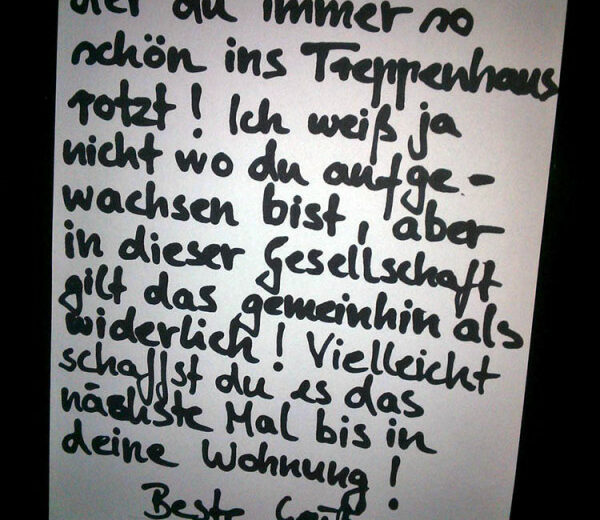 der du immer so
schön ins Treppenhaus
rotzt! Ich weiß ja
nicht wo du aufge-
wachsen bist, aber
in dieser Gesellschaft
gilt das gemeinhin als
widerlich! Vielleicht
schaffst du es das
nächste Mal bis in
deine Wohnung!
Beste